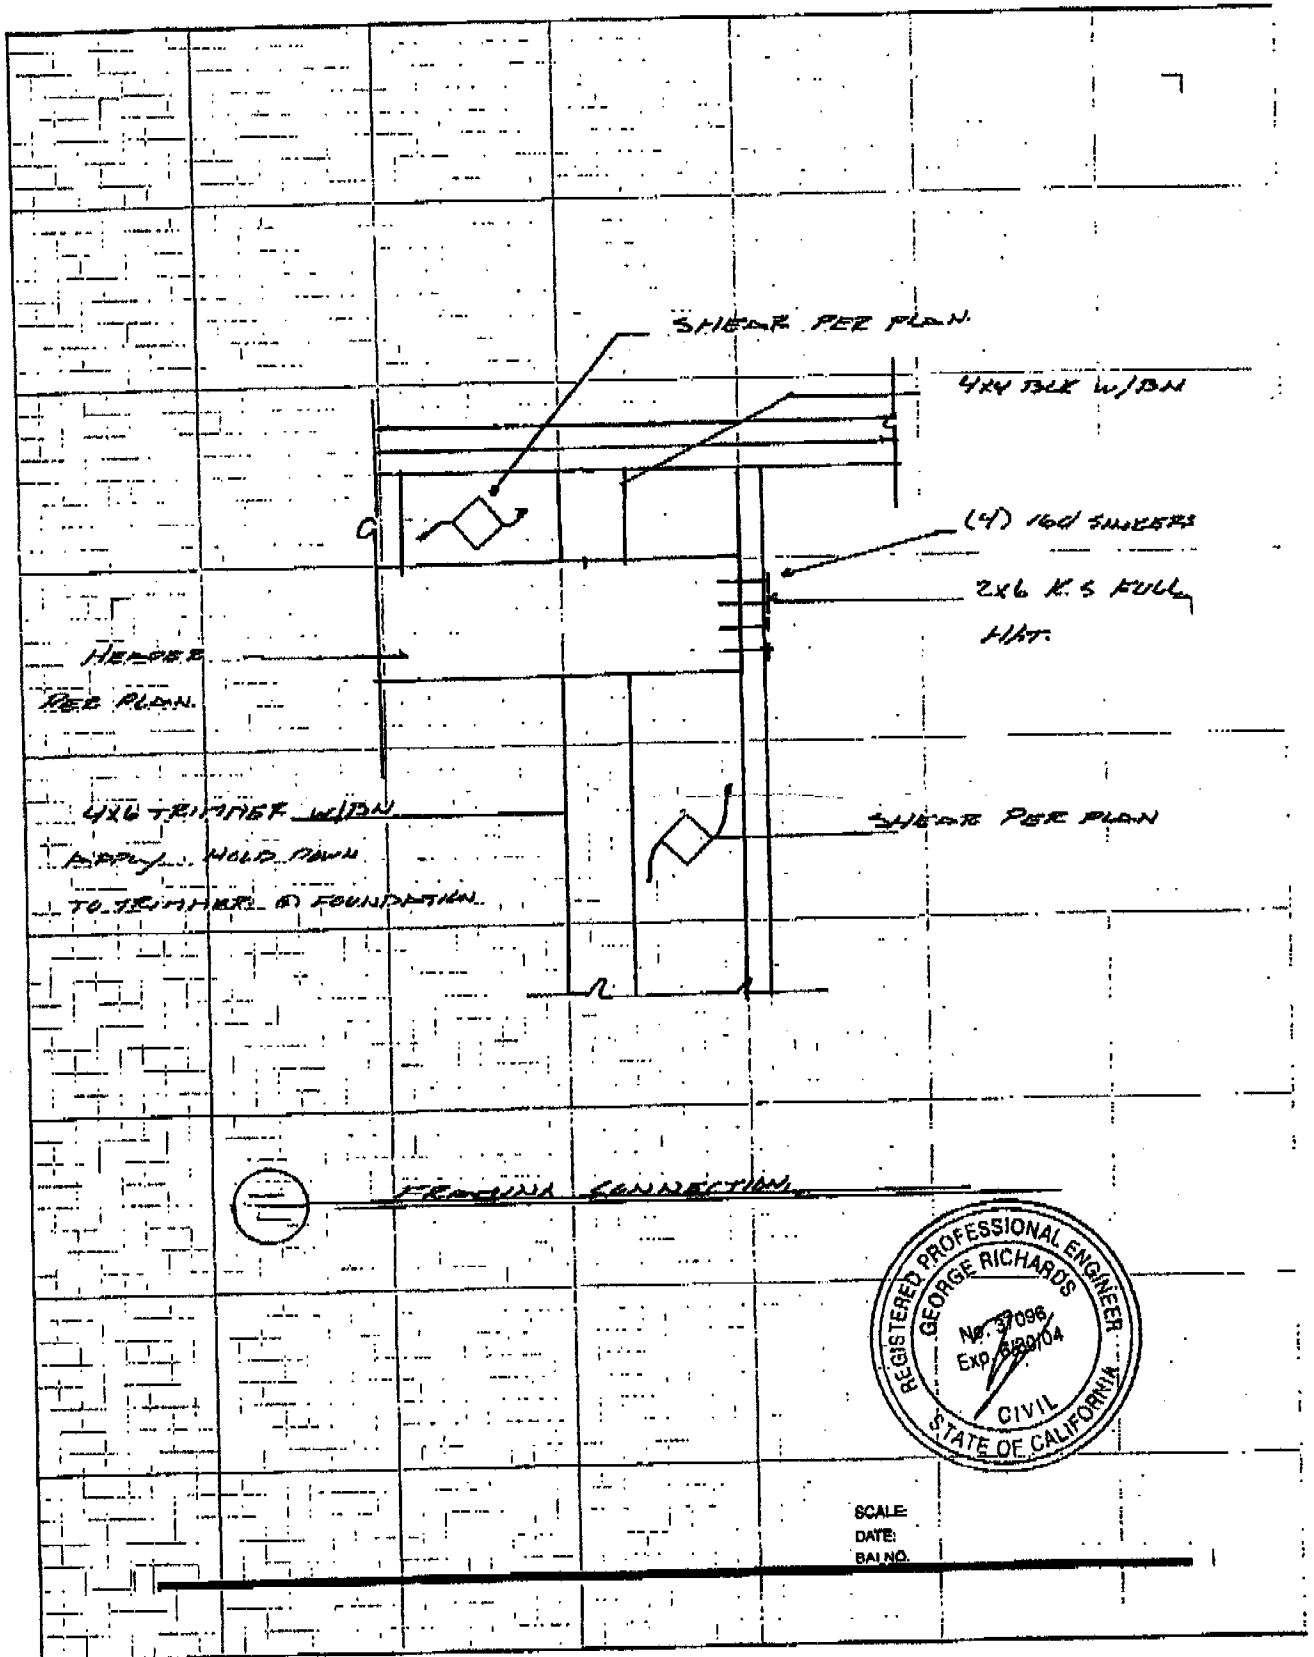 SHEAR PER PLAN
4X4 BLK W/BN
(4) 16d SINKERS
2x6 K.S FULL
HT.
HEADER
PER PLAN.
4X6 TRIMMER W/BN
APPLY HOLD DOWN
TO TRIMMER @ FOUNDATION
SHEAR PER PLAN
FRAMING CONNECTION
REGISTERED PROFESSIONAL ENGINEER
GEORGE RICHARDS
No. 37096
Exp. 6/30/04
CIVIL
STATE OF CALIFORNIA
SCALE:
DATE:
BAI NO.